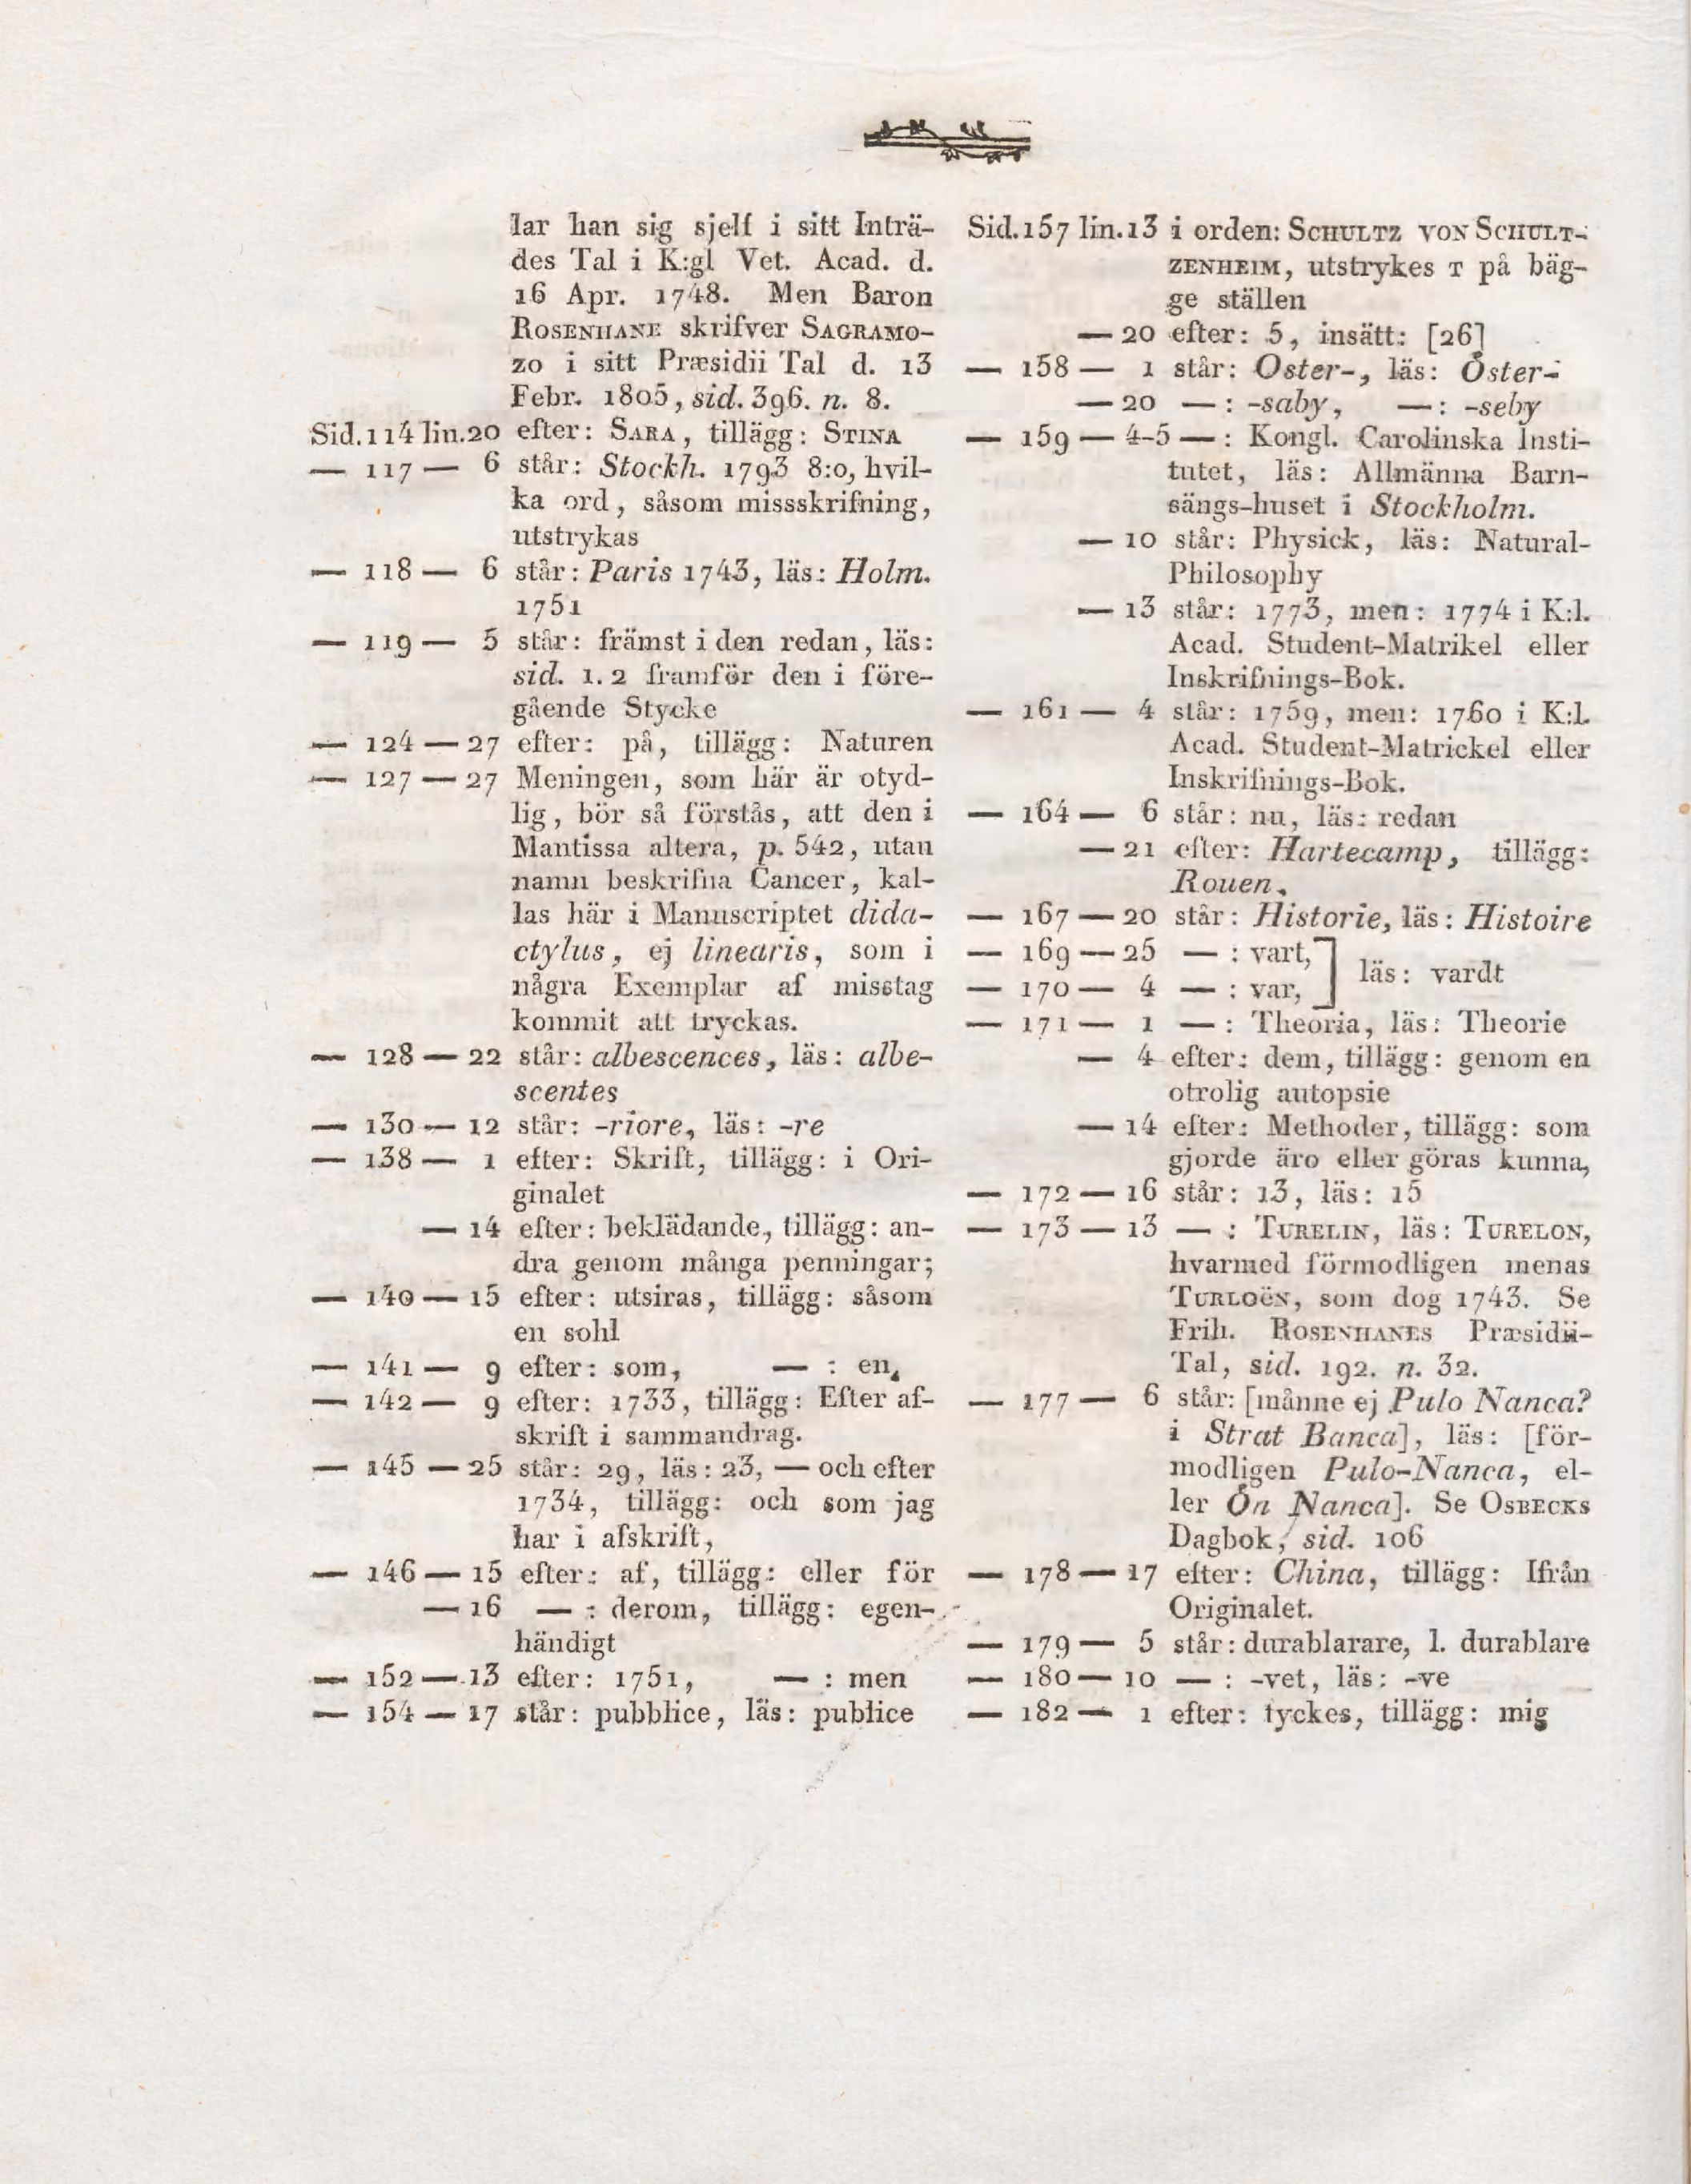 lar han sig sjelf i sitt Inträ-
des Tal i K:gl Vet. Acad. d.
16 Apr. 1748. Men Baron
ROSENHANE skrifver SAGRAMO-
zo i sitt Præsidii Tal d. 13
Febr. 1805, sid. 396. n. 8.
Sid. 114 lin. 20 efter: SARA, tillägg: STINA
— 117 — 6 står: Stockh. 1793 8:o, hvil-
ka ord, såsom missskrifning,
utstrykas
— 118 — 6 står: Paris 1743, läs: Holm.
1751
— 119 — 5 står: främst i den redan, läs:
sid. 1. 2 framför den i före-
gående Stycke
— 124 — 27 efter: på, tillägg: Naturen
— 127 — 27 Meningen, som här är otyd-
lig, bör så förstås, att den i
Mantissa altera, p. 542, utan
namn beskrifna Cancer, kal-
las här i Manuscriptet dida-
ctylus, ej linearis, som i
några Exemplar af misstag
kommit att tryckas.
— 128 — 22 står: albescences, läs: albe-
scentes
— 130 — 12 står: -riore, läs: -re
— 138 — 1 efter: Skrift, tillägg: i Ori-
ginalet
— 14 efter: beklädande, tillägg: an-
dra genom många penningar;
— 140 — 15 efter: utsiras, tillägg: såsom
en sohl
— 141 — 9 efter: som, — : en,
— 142 — 9 efter: 1733, tillägg: Efter af-
skrift i sammandrag.
— 145 — 25 står: 29, läs: 23, — och efter
1734, tillägg: och som jag
har i afskrift,
— 146 — 15 efter: af, tillägg: eller för
— 16 — : derom, tillägg: egen-
händigt
— 152 — 13 efter: 1751, — : men
— 154 — 17 står: pubblice, läs: publice
Sid. 157 lin. 13 i orden: SCHULTZ VON SCHULT-
ZENHEIM, utstrykes T på bäg-
ge ställen
— 20 efter: 5, insätt: [26]
— 158 — 1 står: Oster-, läs: Öster-
— 20 — : -saby, — : -seby
— 159 — 4-5 — : Kongl. Carolinska Insti-
tutet, läs: Allmänna Barn-
sängs-huset i Stockholm.
— 10 står: Physick, läs: Natural-
Philosophy
— 13 står: 1773, men: 1774 i K:l.
Acad. Student-Matrikel eller
Inskrifnings-Bok.
— 161 — 4 står: 1759, men: 1760 i K:l.
Acad. Student-Matrickel eller
Inskrifnings-Bok.
— 164 — 6 står: nu, läs: redan
— 21 efter: Hartecamp, tillägg:
Rouen,
— 167 — 20 står: Historie, läs: Histoire
— 169 — 25 — : vart, ] läs: vardt
— 170 — 4 — : var,
— 171 — 1 — : Theoria, läs: Theorie
— 4 efter: dem, tillägg: genom en
otrolig autopsie
— 14 efter: Methoder, tillägg: som
gjorde äro eller göras kunna,
— 172 — 16 står: 13, läs: 15
— 173 — 13 — : TURELIN, läs: TURELON,
hvarmed förmodligen menas
TURLOËN, som dog 1743. Se
Frih. ROSENHANES Præsidii-
Tal, sid. 192. n. 32.
— 177 — 6 står: [månne ej Pulo Nanca?
i Strat Banca], läs: [för-
modligen Pulo-Nanca, el-
ler Ön Nanca]. Se OSBECKS
Dagbok, sid. 106
— 178 — 17 efter: China, tillägg: Ifrån
Originalet.
— 179 — 5 står: durablarare, l. durablare
— 180 — 10 — : -vet, läs: -ve
— 182 — 1 efter: tyckes, tillägg: mig